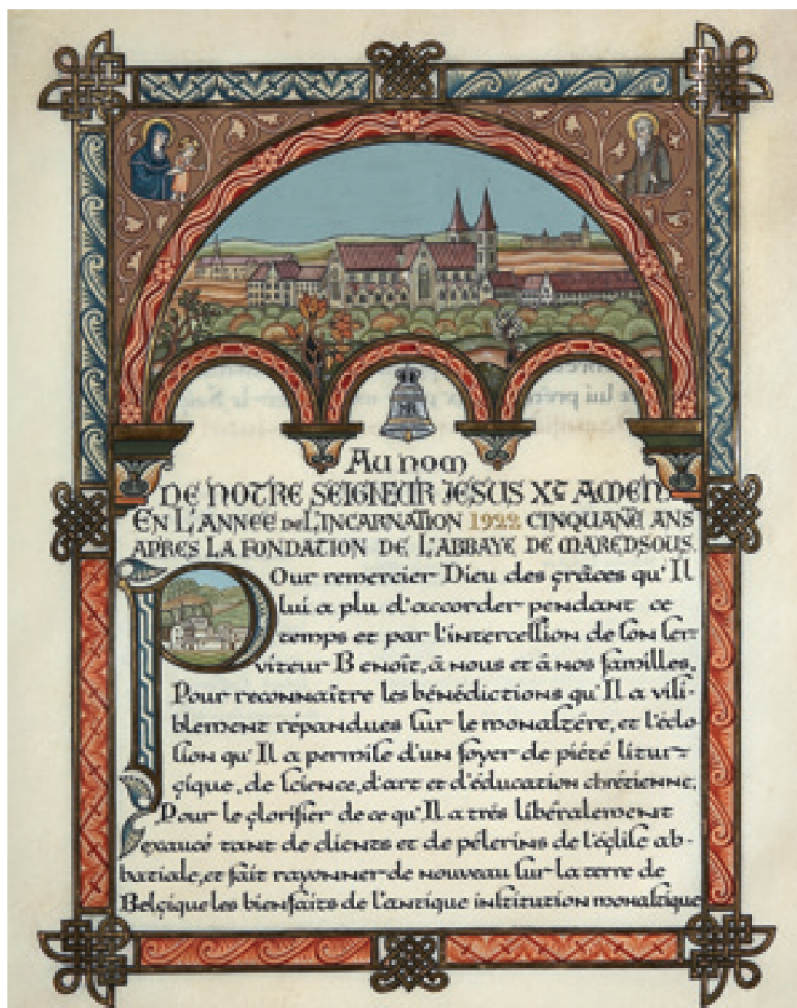 Au nom
DE NOTRE SEIGNEUR JESUS Xt AMEN
EN L'ANNEE DE L'INCARNATION 1922 CINQUANTE ANS
APRES LA FONDATION DE L'ABBAYE DE MAREDSOUS.
Pour remercier Dieu des grâces qu'Il
lui a plu d'accorder pendant ce
temps et par l'intercession de son ser
viteur Benoît, à nous et à nos familles.
Pour reconnaître les bénédictions qu'Il a visi-
blement répandues sur le monastére, et l'éclo-
sion qu'Il a permise d'un foyer de piété litur-
gique, de science, d'art et d'éducation chrétienne.
Pour le glorifier de ce qu'Il a trés libéralement
exaucé tant de clients et de pélerins de l'église ab-
batiale, et fait rayonner de nouveau sur la terre de
Belgique les bienfaits de l'antique institution monastique